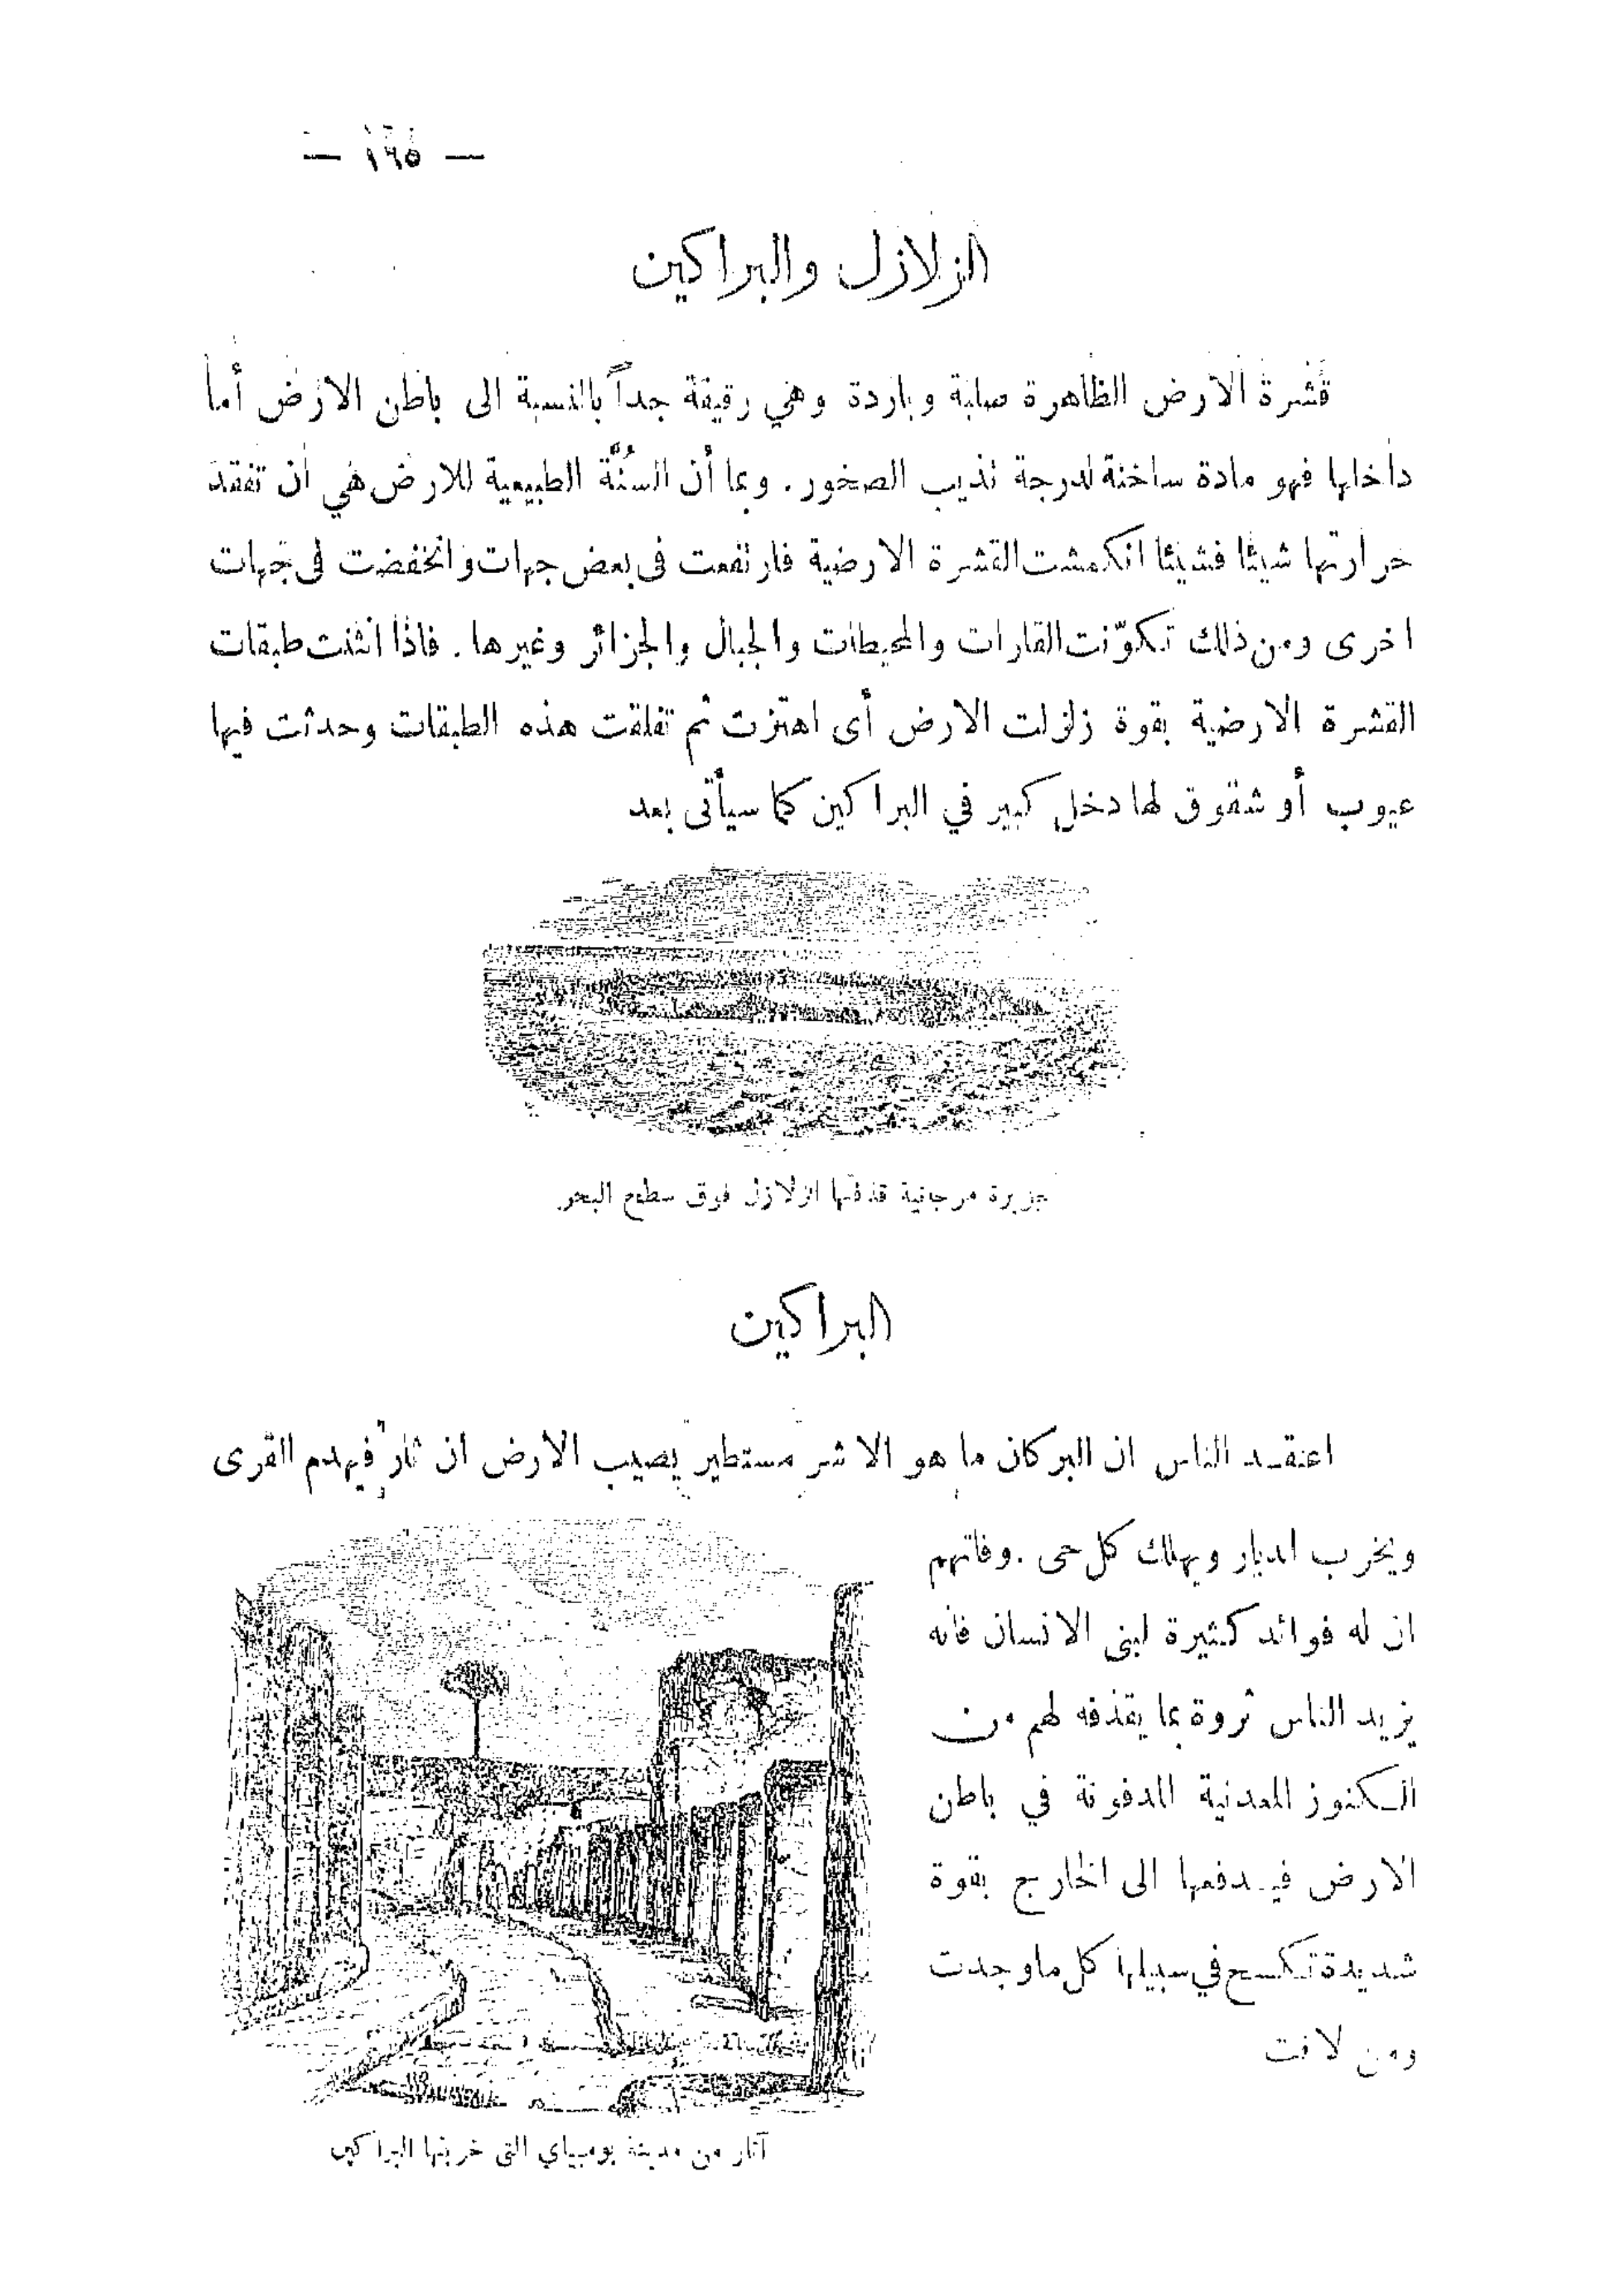 — ١٦٥ —
الزلازل والبراكين
قشرة الارض الظاهرة صلبة وباردة وهي رقيقة جداً بالنسبة الى باطن الارض أما
داخلها فهو مادة ساخنة لدرجة تذيب الصخور . وبما أن السُنَّة الطبيعية للارض هي ان تفقد
حرارتها شيئا فشيئا انكمشت القشرة الارضية فارتفعت فى بعض جهات وانخفضت فى جهات
اخرى ومن ذلك تكوّنت القارات والمحيطات والجبال والجزائر وغيرها . فاذا انثنت طبقات
القشرة الارضية بقوة زلزلت الارض أى اهتزت ثم تفلقت هذه الطبقات وحدثت فيها
عيوب أو شقوق لها دخل كبير في البراكين كما سيأتى بعد
جزيرة مرجانية قذفتها الزلازل فوق سطح البحر
البراكين
اعتقد الناس ان البركان ما هو الا شر مستطير يصيب الارض ان ثار فيهدم القرى
ويخرب الديار ويهلك كل حى . وفاتهم
ان له فوائد كثيرة لبنى الانسان فانه
يزيد الناس ثروة بما يقذفه لهم من
الكنوز المعدنية المدفونة في باطن
الارض فيدفعها الى الخارج بقوة
شديدة تكسح في سبيلها كل ما وجدت
ومن لاقت
آثار من مدينة بومبياي التى خربتها البراكين